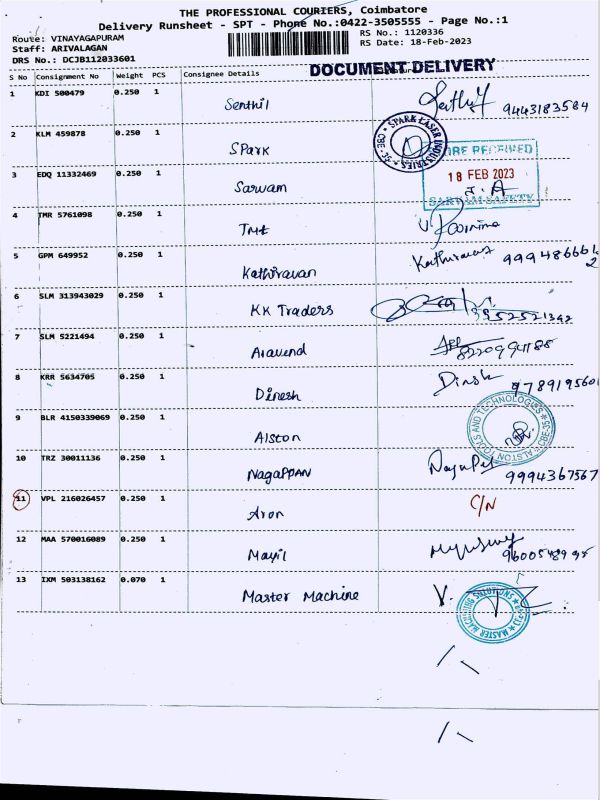 THE PROFESSIONAL COURIERS, Coimbatore
Delivery Runsheet - SPT - Phone No.:0422-3505555 - Page No.:1
Route: VINAYAGAPURAM RS No.: 1120336
Staff: ARIVALAGAN RS Date: 18-Feb-2023
DRS No.: DCJB112033601
DOCUMENT DELIVERY
S No Consignment No Weight PCS Consignee Details
1 KDI 500479 0.250 1 Senthil 9443183584
2 KLM 459878 0.250 1 SPark
SPARK LASER INDUSTRIES
3 EDQ 11332469 0.250 1 Sarwam
18 FEB 2023
4 TMR 5761098 0.250 1 TMI V. Poornima
5 GPM 649952 0.250 1 Kathiravan Kathiravan 9994866612
6 SLM 313943029 0.250 1 KK Traders 9952521342
7 SLM 5221494 0.250 1 Aravend
8 KRR 5634705 0.250 1 Dinesh Dinesh 978919560
9 BLR 4150339069 0.250 1 Alston
ALSTON TOOLS AND TECHNOLOGIES
10 TRZ 30011136 0.250 1 NagaPPAN 9994367567
11 VPL 216026457 0.250 1 Aron C/N
12 MAA 570016089 0.250 1 Mayil
13 IXM 503138162 0.070 1 Master Machine
MASTER MACHINING SOLUTIONS